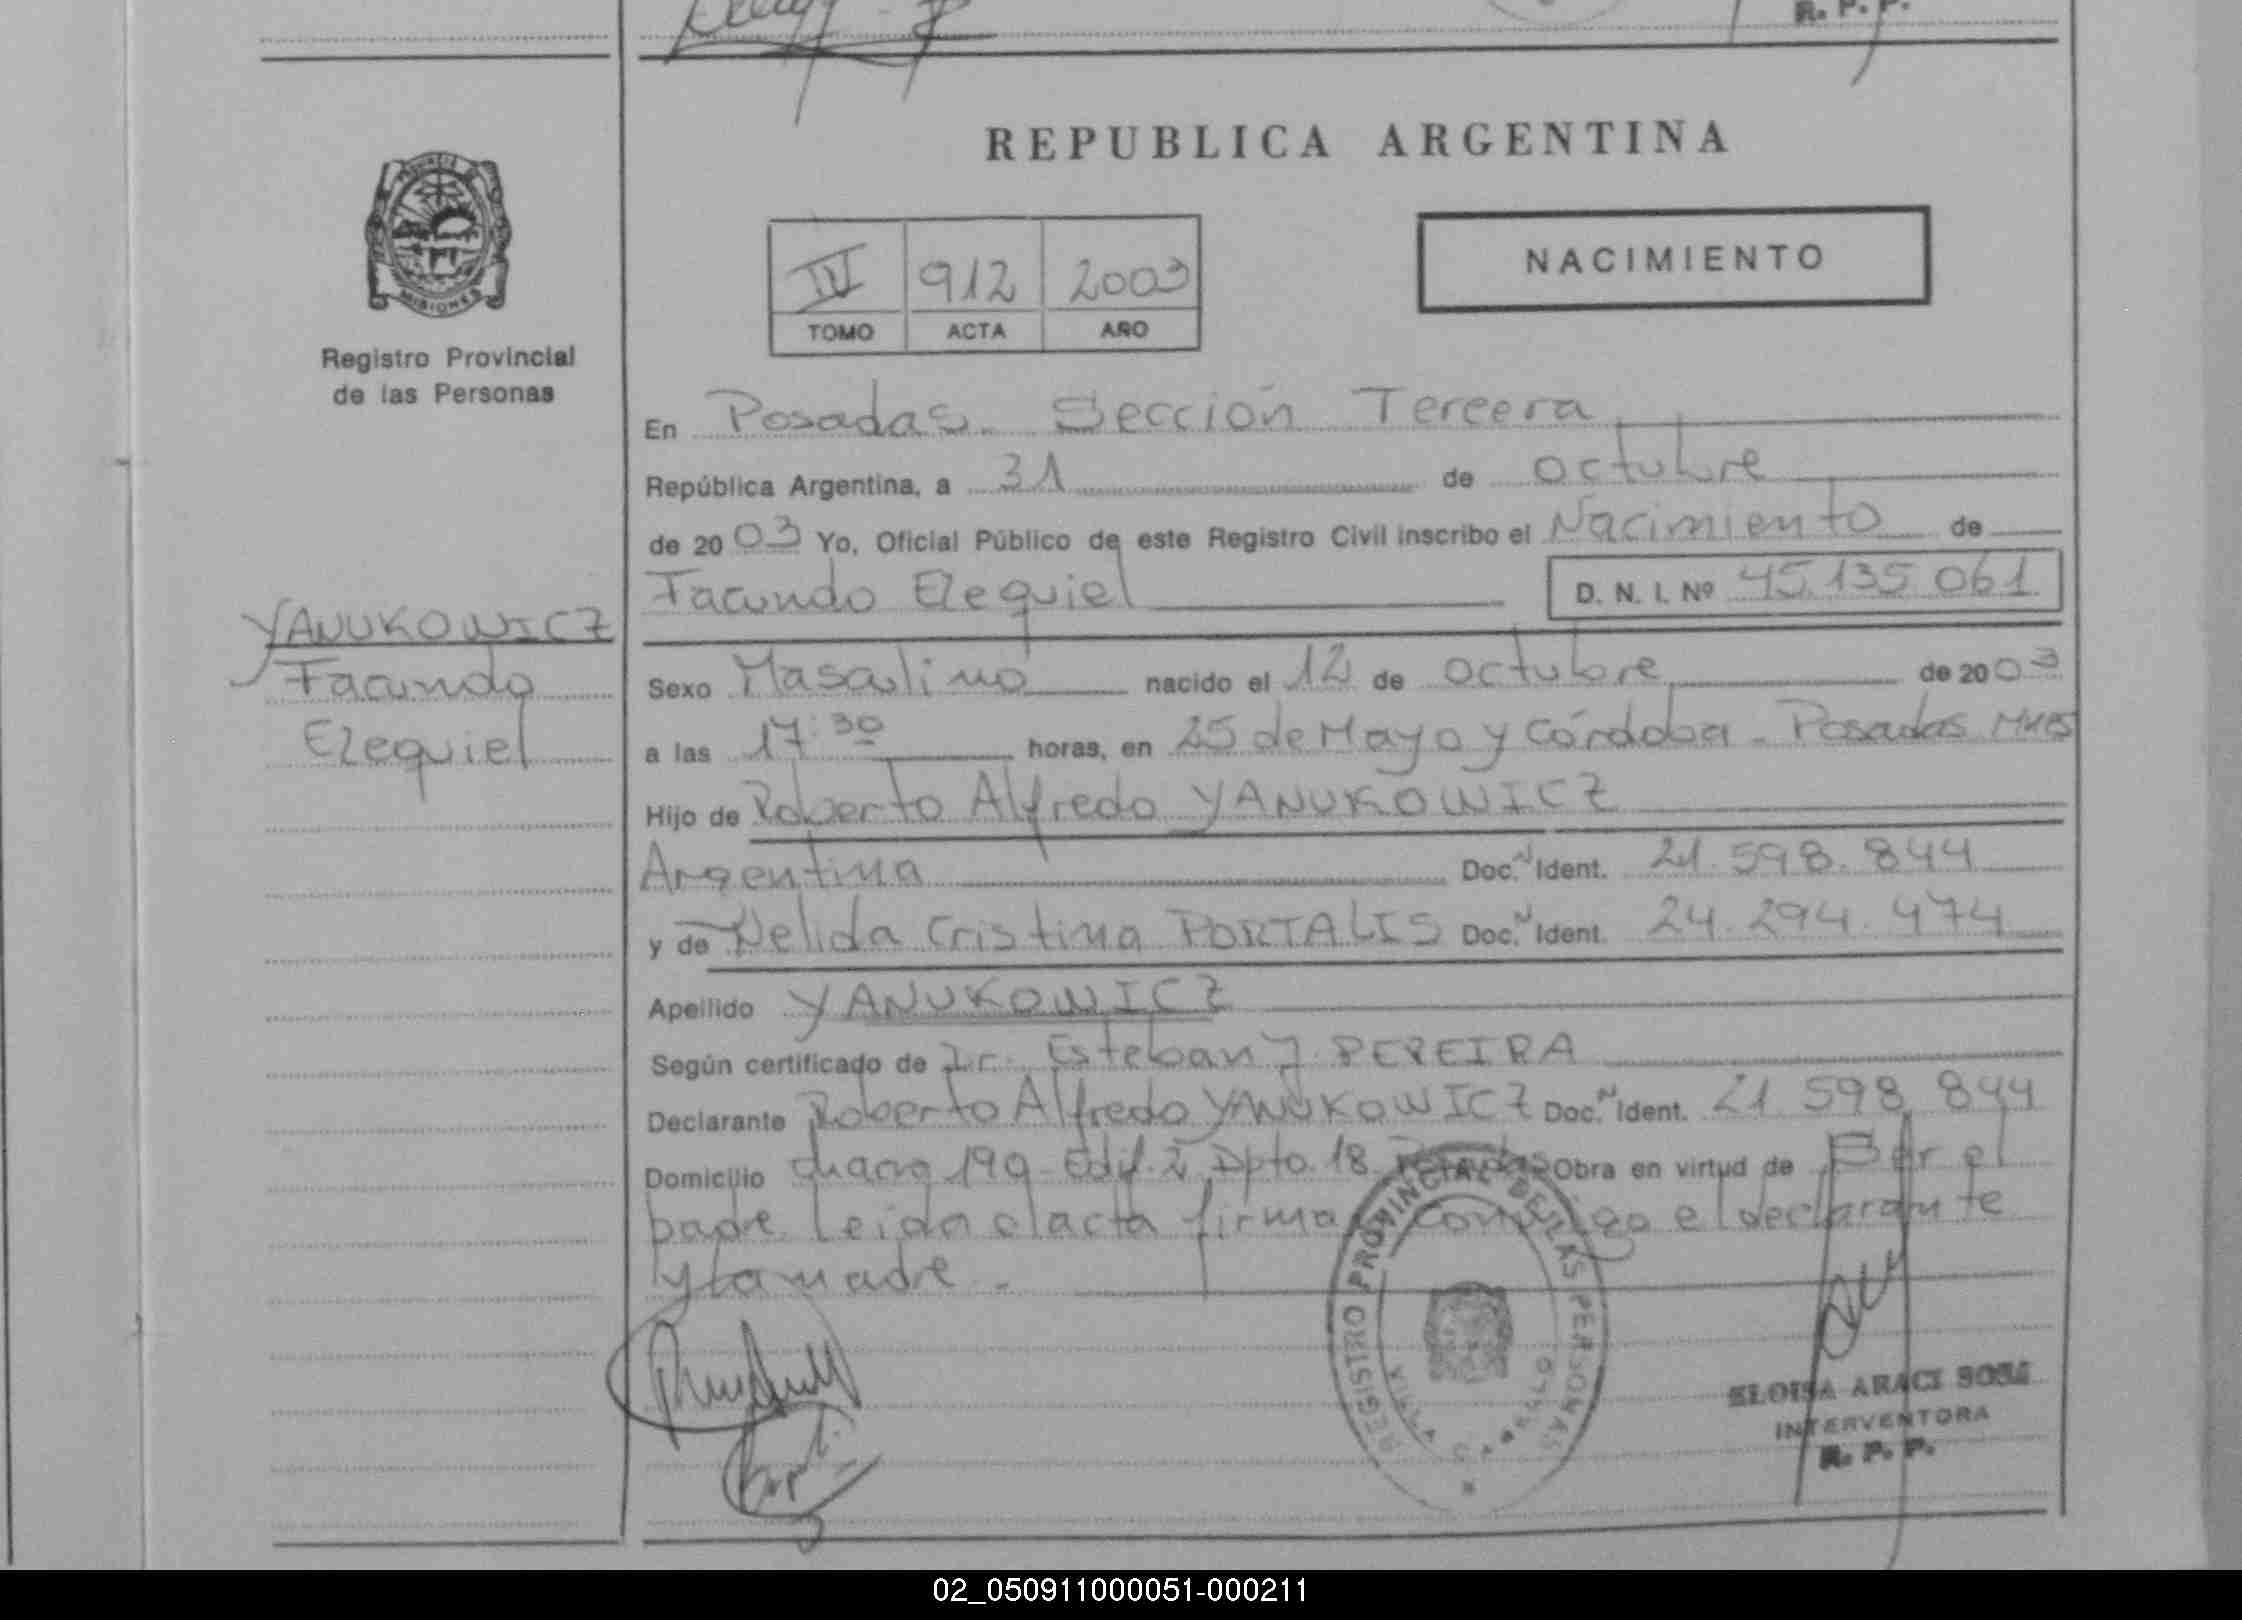 R. P. P.
REPUBLICA ARGENTINA
NACIMIENTO
IV 912 2003
TOMO ACTA AÑO
MISIONES
Registro Provincial
de las Personas
En Posadas. Sección Tercera
República Argentina, a 31 de octubre
de 2003 Yo, Oficial Público de este Registro Civil inscribo el Nacimiento de
Facundo Ezequiel D. N. I. Nº 45.135.061
YANUKOWICZ
Facundo
Ezequiel
Sexo Masculino nacido el 12 de octubre de 2003
a las 17:30 horas, en 25 de Mayo y Córdoba - Posadas Mnes
Hijo de Roberto Alfredo YANUKOWICZ
Argentina Doc. N Ident. 21.598.844
y de Nelida Cristina PORTALIS Doc. N Ident. 24.294.474
Apellido YANUKOWICZ
Según certificado de Dr. Esteban J. PEREIRA
Declarante Roberto Alfredo YANUKOWICZ Doc. N Ident. 21.598.844
Domicilio chacra 190 - Edif. 2, Dpto. 18 Posadas Obra en virtud de Ser el
padre. Leida el acta firma conmigo el declarante
y la madre -
REGISTRO PROVINCIAL DE LAS PERSONAS
ELOISA ARACI SOSA
INTERVENTORA
R. P. P.
02_050911000051-000211